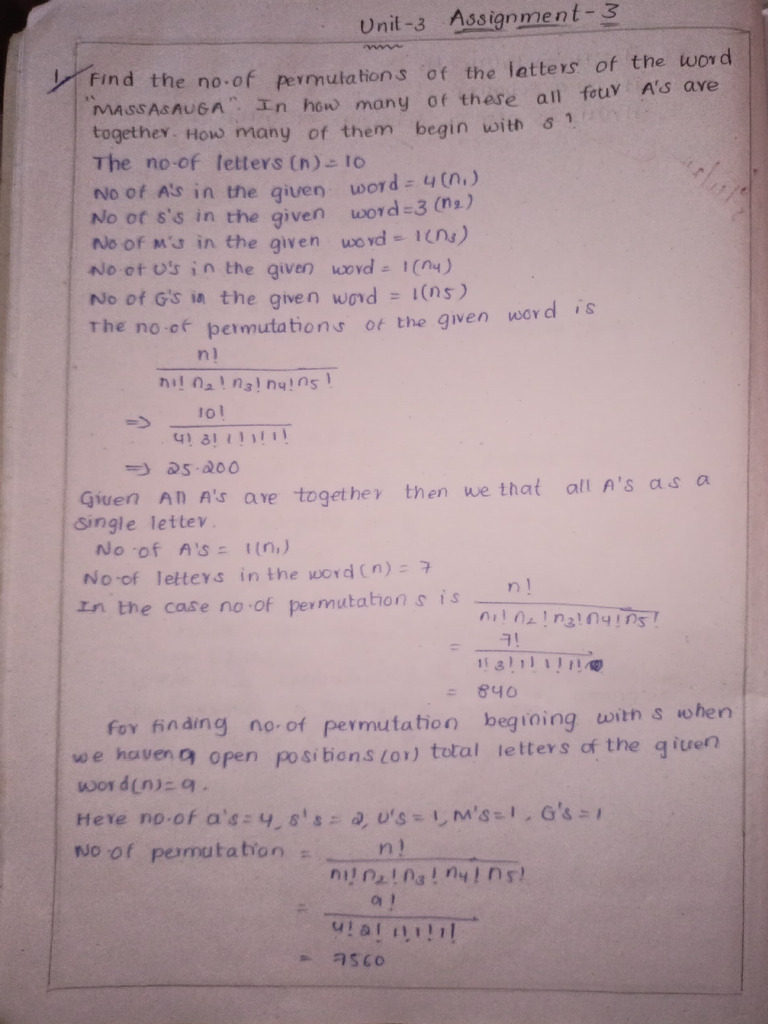 Unit-3 Assignment-3
1. Find the no.of permutations of the letters of the word
"MASSASAUGA". In how many of these all four A's are
together. How many of them begin with s?
The no.of letters (n) = 10
No of A's in the given word = 4(n1)
No of s's in the given word = 3(n2)
No of M's in the given word = 1(n3)
No of U's in the given word = 1(n4)
No of G's in the given word = 1(n5)
The no.of permutations of the given word is
n!
n1! n2! n3! n4! n5!
=> 10!
4! 3! 1! 1! 1!
=> 25.200
Given All A's are together then we that all A's as a
single letter.
No of A's = 1(n1)
No.of letters in the word (n) = 7
In the case no.of permutations is n!
n1! n2! n3! n4! n5!
= 7!
1! 3! 1! 1! 1!
= 840
For finding no.of permutation begining with s when
we haven 9 open positions (or) total letters of the given
word(n)=9.
Here no.of a's=4, s's=2, U's=1, M's=1, G's=1
No of permutation = n!
n1! n2! n3! n4! n5!
= 9!
4! 2! 1! 1! 1!
= 7560